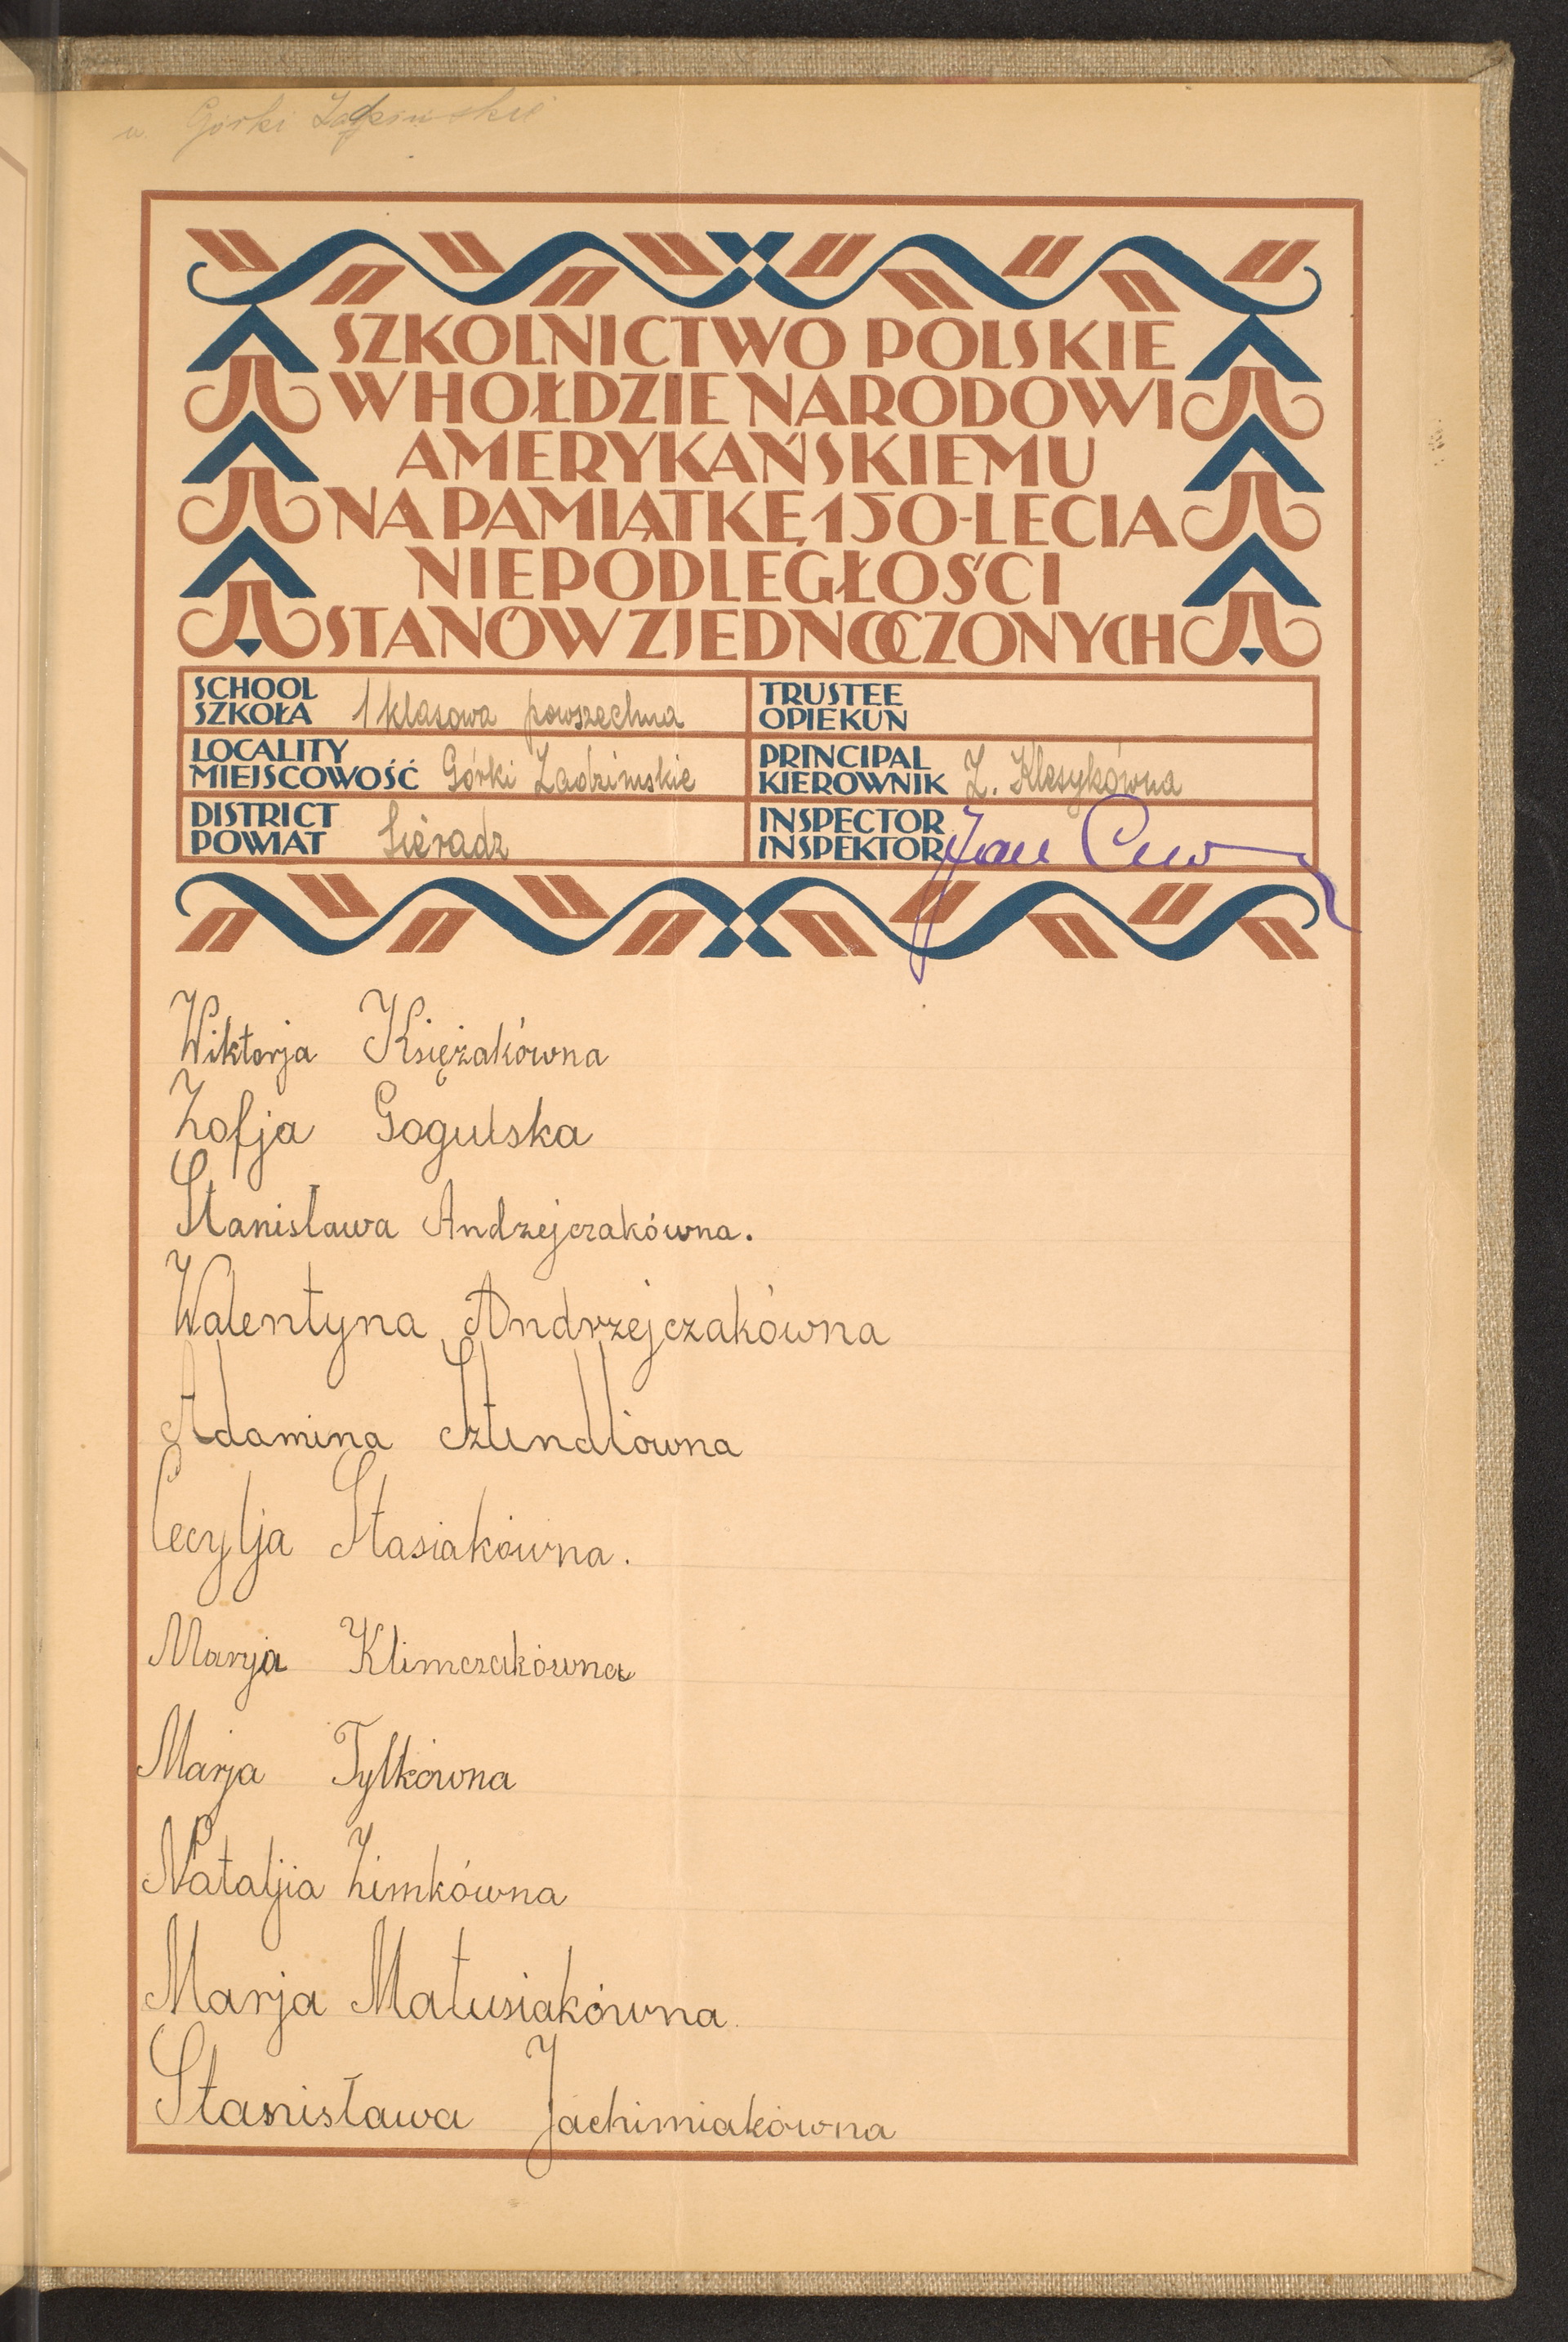 Górki Zadzimskie
SZKOLNICTWO POLSKIE
W HOŁDZIE NARODOWI
AMERYKAŃSKIEMU
NA PAMIĄTKĘ 150-LECIA
NIEPODLEGŁOŚCI
STANÓW ZJEDNOCZONYCH
SCHOOL
SZKOŁA 1 klasowa powszechna
TRUSTEE
OPIEKUN
LOCALITY
MIEJSCOWOŚĆ Górki Zadzimskie
PRINCIPAL
KIEROWNIK Z. Klesykówna
DISTRICT
POWIAT Sieradz
INSPECTOR
INSPEKTOR Jan
Wiktorja Księżakówna
Zofja Gogulska
Stanisława Andzejczakówna.
Walentyna Andrzejczakówna
Adamina Sztendlówna
Cecylja Stasiakówna.
Marja Klimczakówna
Marja Tylkówna
Nataljia Zimkówna
Marja Matusiakówna.
Stanisława Jachimiakówna